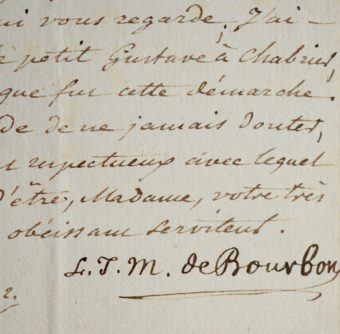 ui vous regarde. J'ai -
le petit Gustave à Chabrier,
que fut cette démarche.
de de ne jamais douter,
respectueux avec lequel
d'être, Madame, votre très
obéissant serviteur.
L. J. M. de Bourbon
2.